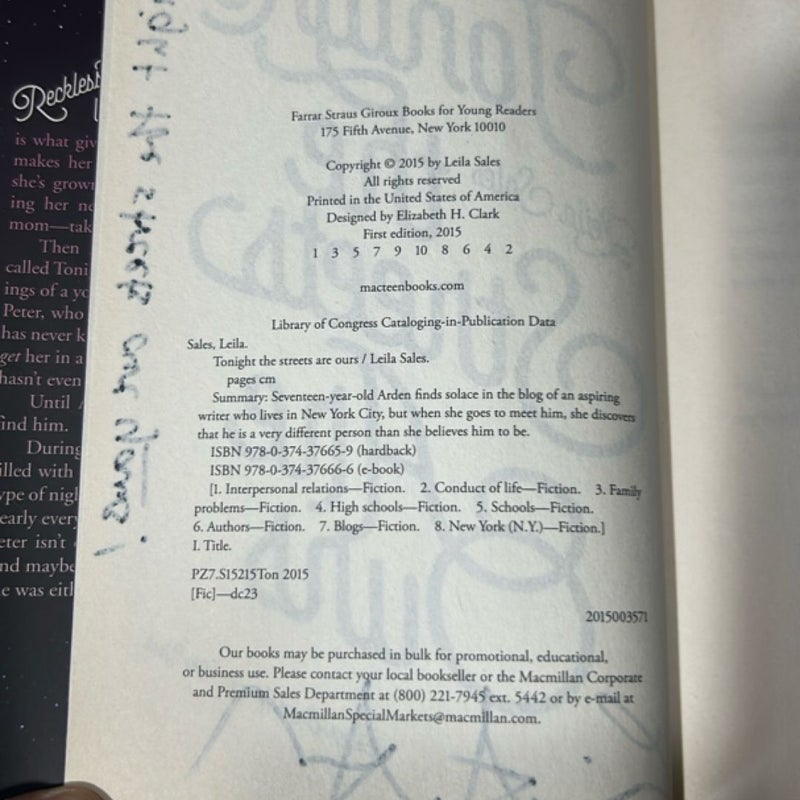 Reckless
is what giv
makes her
she's grow
ing her ne
mom—tak
Then
called Toni
ings of a yo
Peter, who
has never k
get her in a
hasn't even
Until
find him.
During
illed with
ype of nigl
early every
eter isn't
nd maybe
e was eitl
the streets are yours!
Farrar Straus Giroux Books for Young Readers
175 Fifth Avenue, New York 10010
Copyright © 2015 by Leila Sales
All rights reserved
Printed in the United States of America
Designed by Elizabeth H. Clark
First edition, 2015
1 3 5 7 9 10 8 6 4 2
macteenbooks.com
Library of Congress Cataloging-in-Publication Data
Sales, Leila.
Tonight the streets are ours / Leila Sales.
pages cm
Summary: Seventeen-year-old Arden finds solace in the blog of an aspiring
writer who lives in New York City, but when she goes to meet him, she discovers
that he is a very different person than she believes him to be.
ISBN 978-0-374-37665-9 (hardback)
ISBN 978-0-374-37666-6 (e-book)
[1. Interpersonal relations—Fiction. 2. Conduct of life—Fiction. 3. Family
problems—Fiction. 4. High schools—Fiction. 5. Schools—Fiction.
6. Authors—Fiction. 7. Blogs—Fiction. 8. New York (N.Y.)—Fiction.]
I. Title.
PZ7.S15215Ton 2015
[Fic]—dc23
2015003571
Our books may be purchased in bulk for promotional, educational,
or business use. Please contact your local bookseller or the Macmillan Corporate
and Premium Sales Department at (800) 221-7945 ext. 5442 or by e-mail at
MacmillanSpecialMarkets@macmillan.com.